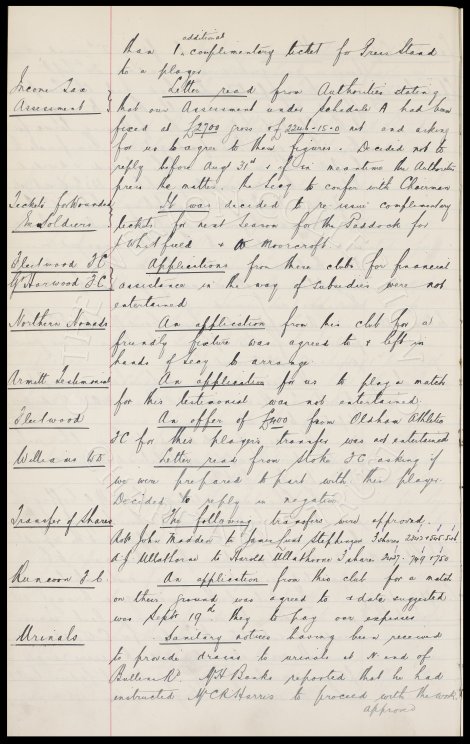 additional
than 1 complimentary ticket for Press Stand
to a player
Income Tax
Assessment
Letter read from Authorities stating
that our Assessment under Schedule A had been
fixed at £2700 gross & £2244-15-0 net and asking
for us to agree to these figures. Decided not to
reply before Augt 31st & if in meantime the Authorities
press the matter, the Secy to confer with Chairman
Tickets for Wounded
Ex Soldiers
It was decided to re issue complimentary
tickets for next season for the Paddock for
J Whitfield & Moorcroft.
Fleetwood F.C
Gt Harwood F.C
Applications from these clubs for financial
assistance in the way of subsidies were not
entertained
Northern Nomads
An application from this club for a
friendly fixture was agreed to & left in
hands of Secy to arrange.
Armitt Testimonial
An application for us to play a match
for this testimonial was not entertained.
Fleetwood
An offer of £400 from Oldham Athletic
FC for this players transfer was not entertained
Williams WD
Letter read from Stoke F.C asking if
we were prepared to part with this player.
Decided to reply in negative
Transfer of Shares
The following transfers were approved.
Robt John Madden to Stephenson 3 shares
A J Ullathorne to Harold Ullathorne 3 shares 749 & 750
Runcorn F.C.
An application from this club for a match
on their ground was agreed to & date suggested
was Septr 19th they to pay our expenses
Urinals
Sanitary notices having been received
to provide drains to urinals at N end of
Bullens Rd. Mr H Banks reported that he had
instructed Mr C R Harris to proceed with the work.
approved